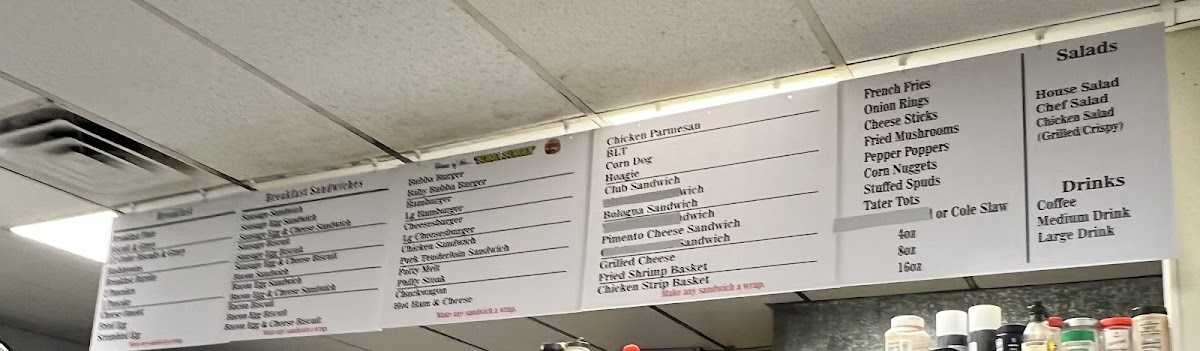 Breakfast
Hashbrowns
Pancake
Cheese Omelet
Fried Egg
Scrambled Egg
Make any sandwich a wrap.
Breakfast Sandwiches
Sausage Sandwich
Sausage Egg Sandwich
Sausage Egg & Cheese Sandwich
Sausage Biscuit
Sausage Egg Biscuit
Sausage Egg & Cheese Biscuit
Bacon Sandwich
Bacon Egg Sandwich
Bacon Egg & Cheese Sandwich
Bacon Biscuit
Bacon Egg Biscuit
Bacon Egg & Cheese Biscuit
Make any sandwich a wrap.
Home of the...
"BUBBA BURGER"
Bubba Burger
Baby Bubba Burger
Hamburger
Lg Hamburger
Cheeseburger
Lg Cheeseburger
Chicken Sandwich
Pork Tenderloin Sandwich
Patty Melt
Philly Steak
Chuckwagon
Hot Ham & Cheese
Make any sandwich a wrap.
Chicken Parmesan
BLT
Corn Dog
Hoagie
Club Sandwich
wich
Bologna Sandwich
dwich
Pimento Cheese Sandwich
Sandwich
Grilled Cheese
Fried Shrimp Basket
Chicken Strip Basket
Make any sandwich a wrap.
French Fries
Onion Rings
Cheese Sticks
Fried Mushrooms
Pepper Poppers
Corn Nuggets
Stuffed Spuds
Tater Tots
or Cole Slaw
4oz
8oz
16oz
Salads
House Salad
Chef Salad
Chicken Salad
(Grilled/Crispy)
Drinks
Coffee
Medium Drink
Large Drink